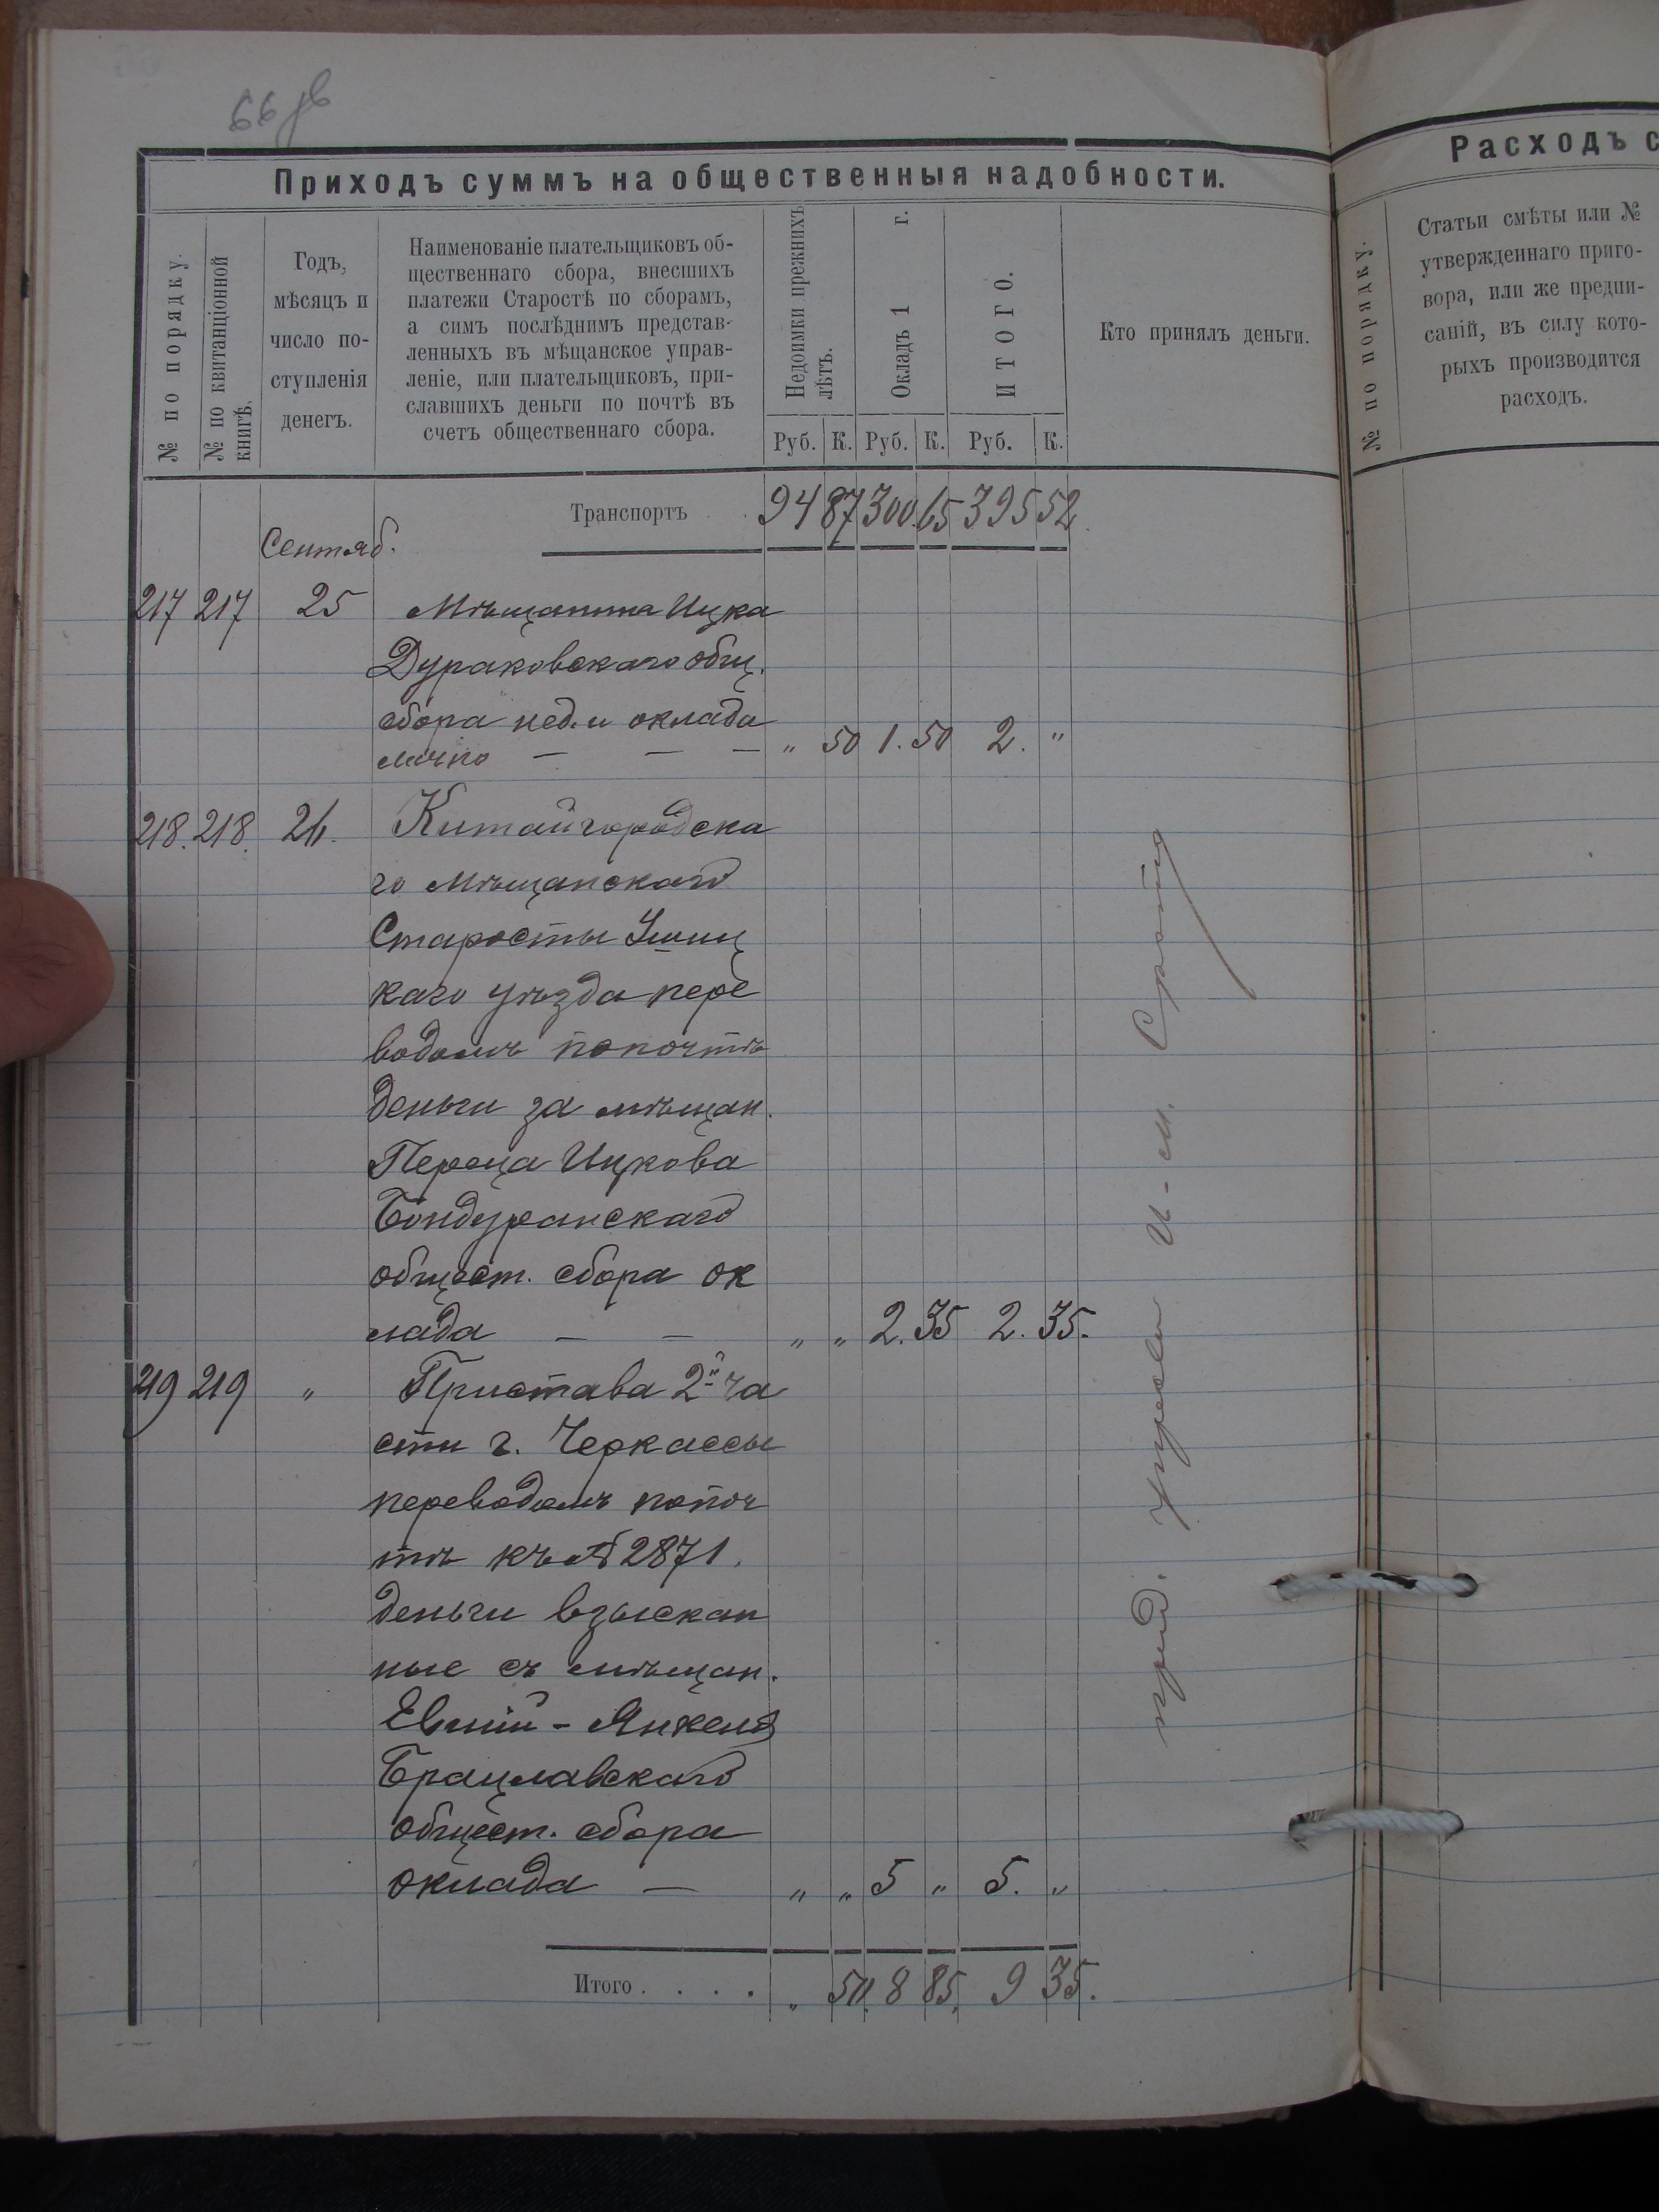 66 зв
Приходъ суммъ на общественныя надобности.
№ по порядку.
№ по квитанціонной книгѣ.
Годъ,
мѣсяцъ и
число по-
ступленія
денегъ.
Наименованіе плательщиковъ об-
щественнаго сбора, внесшихъ
платежи Старостѣ по сборамъ,
а симъ послѣднимъ представ-
ленныхъ въ мѣщанское управ-
леніе, или плательщиковъ, при-
славшихъ деньги по почтѣ въ
счетъ общественнаго сбора.
Недоимки прежнихъ
лѣтъ.
Окладъ 1 г.
ИТОГО.
Руб. К. Руб. К. Руб. К.
Кто принялъ деньги.
Транспортъ 94 87 300 65 395 52
Сентяб.
217 217 25 Мѣщанина Ицка
Дураковскаго общ.
сбора нед. и оклада
лично — — — " 50 1. 50 2. "
218. 218. 26. Китайгородска
го Мѣщанскаго
Старосты Ушиц
каго уѣзда пере
водомъ по почтѣ
деньги за мѣщан.
Переца Ицкова
Бондуранскаго
общест. сбора ок
лада — — " " 2. 35 2. 35.
219 219 " Пристава 2й ча
сти г. Черкассы
переводомъ по поч
тѣ къ № 2871.
деньги взыскан
ные съ мѣщан.
Янкеля
Брацлавскаго
общест. сбора
оклада — " " 5 " 5. "
Итого . . . . " 50. 8 85. 9 35.
Расходъ с
№ по порядку.
Статьи смѣты или №
утвержденнаго приго-
вора, или же предпи-
саній, въ силу кото-
рыхъ производится
расходъ.